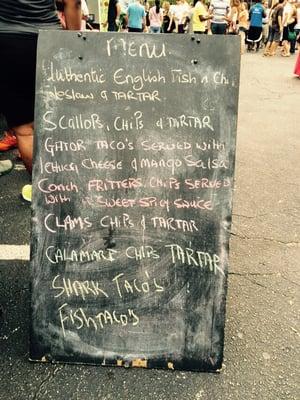 MENU
Authentic English Fish n Chi
leslaw & TARTAR
SCALLOPS, CHIPS & TARTAR
GATOR TACO'S SERVED with
CHEESE & MANGO SALSA
CONCH FRITTERS, CHIPS SERVED
WITH SWEET SPICY SAUCE
CLAMS CHIPS & TARTAR
CALAMARI CHIPS TARTAR
SHARK TACO'S
FISHTACO'S